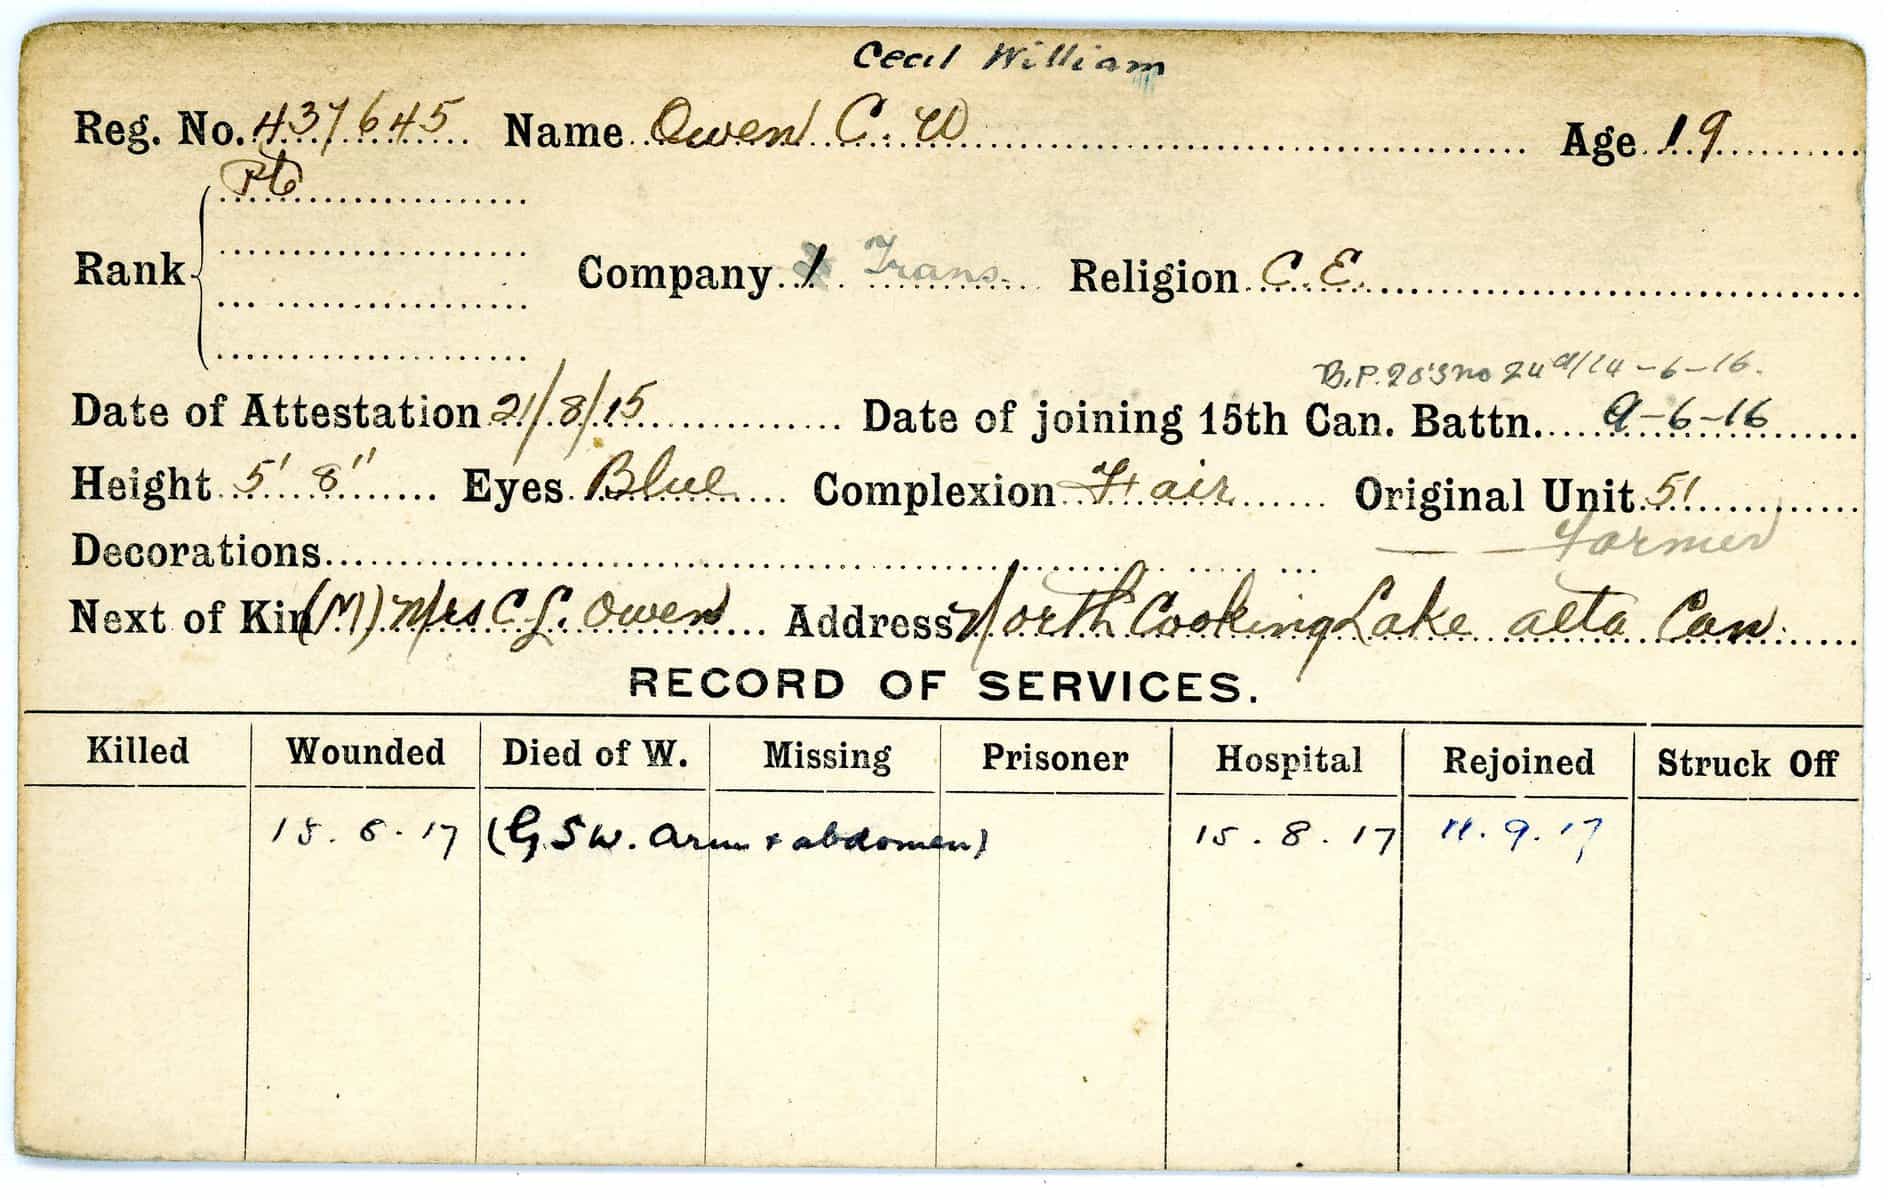 Cecil William
Reg. No. 437645 Name Owen C. W Age 19
Pte
Rank Company 1 Trans. Religion C. E.
14-6-16.
Date of Attestation 21/8/15 Date of joining 15th Can. Battn. 9-6-16
Height 5' 8" Eyes Blue Complexion Fair Original Unit 51
Decorations Farmer
Next of Kin (M) Mrs C. L. Owen Address North Cooking Lake alta Can
RECORD OF SERVICES.
Killed Wounded Died of W. Missing Prisoner Hospital Rejoined Struck Off
15. 8. 17 (G S W. arm + abdomen) 15. 8. 17 11. 9. 17